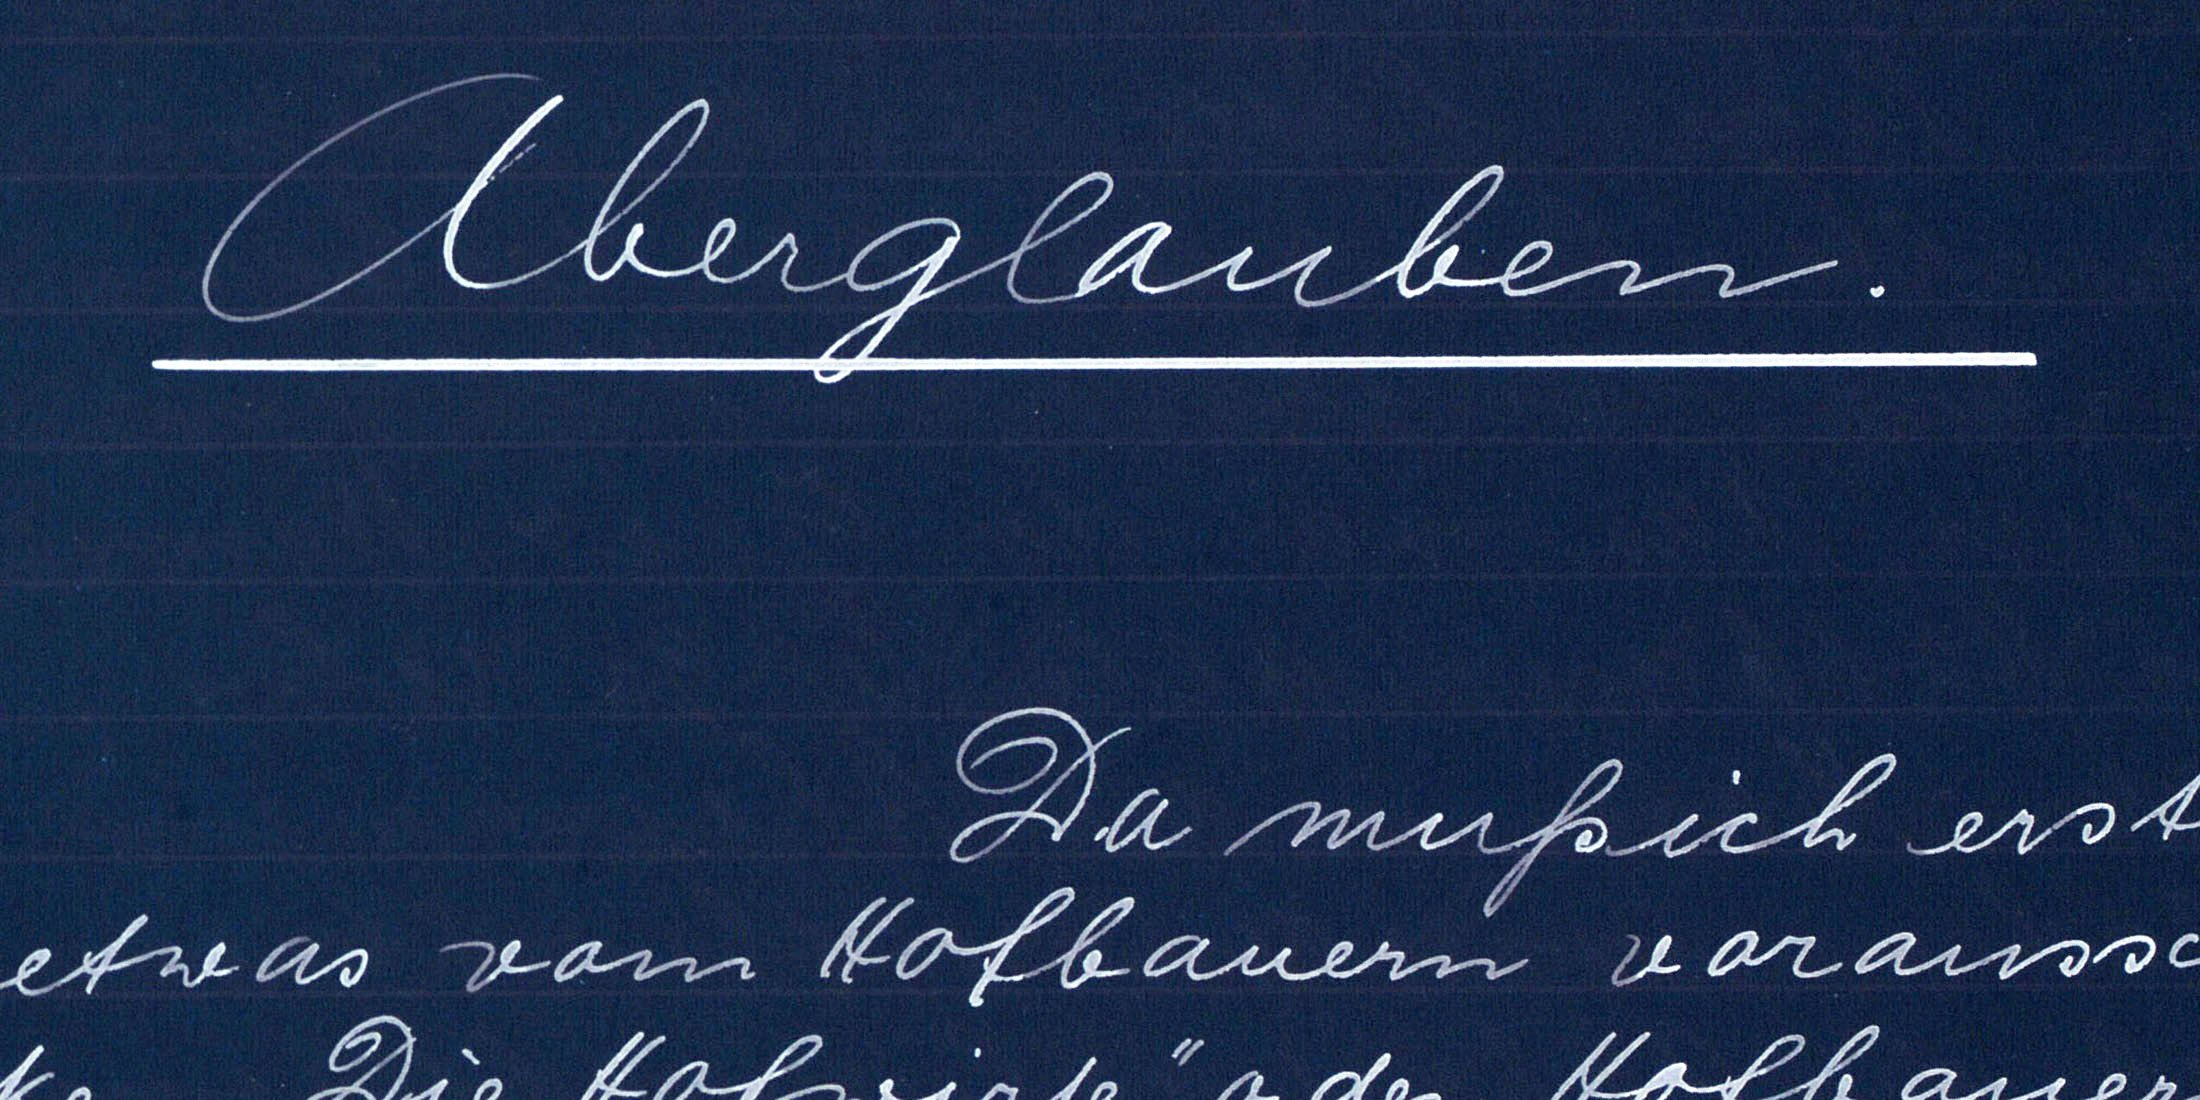 Aberglauben.
Da muß ich erst
etwas vom Hofbauern voraussc
ke Die Hofwirte" oder Hofbauer